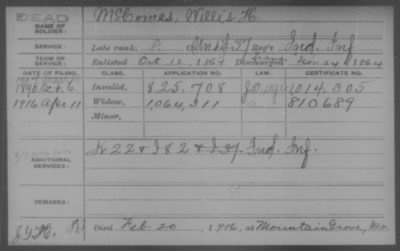 DEAD
NAME OF SOLDIER: McComas, Willis H.
SERVICE: Late rank, P. Unasd 37 Reg't Ind. Inf.
TERM OF SERVICE: Enlisted Oct. 12, 186 Discharged Nov. 24, 1864
DATE OF FILING. CLASS. APPLICATION NO. LAW. CERTIFICATE NO.
1890 Oct. 6 Invalid, 825,708 1014,005
1916 Apr 11 Widow, 810689
Minor,
ADDITIONAL SERVICES: K 22 & I 82 & I 37 Ind. Inf.
REMARKS:
Died Feb. 20, 1916, at Mountain Grove, Mo.